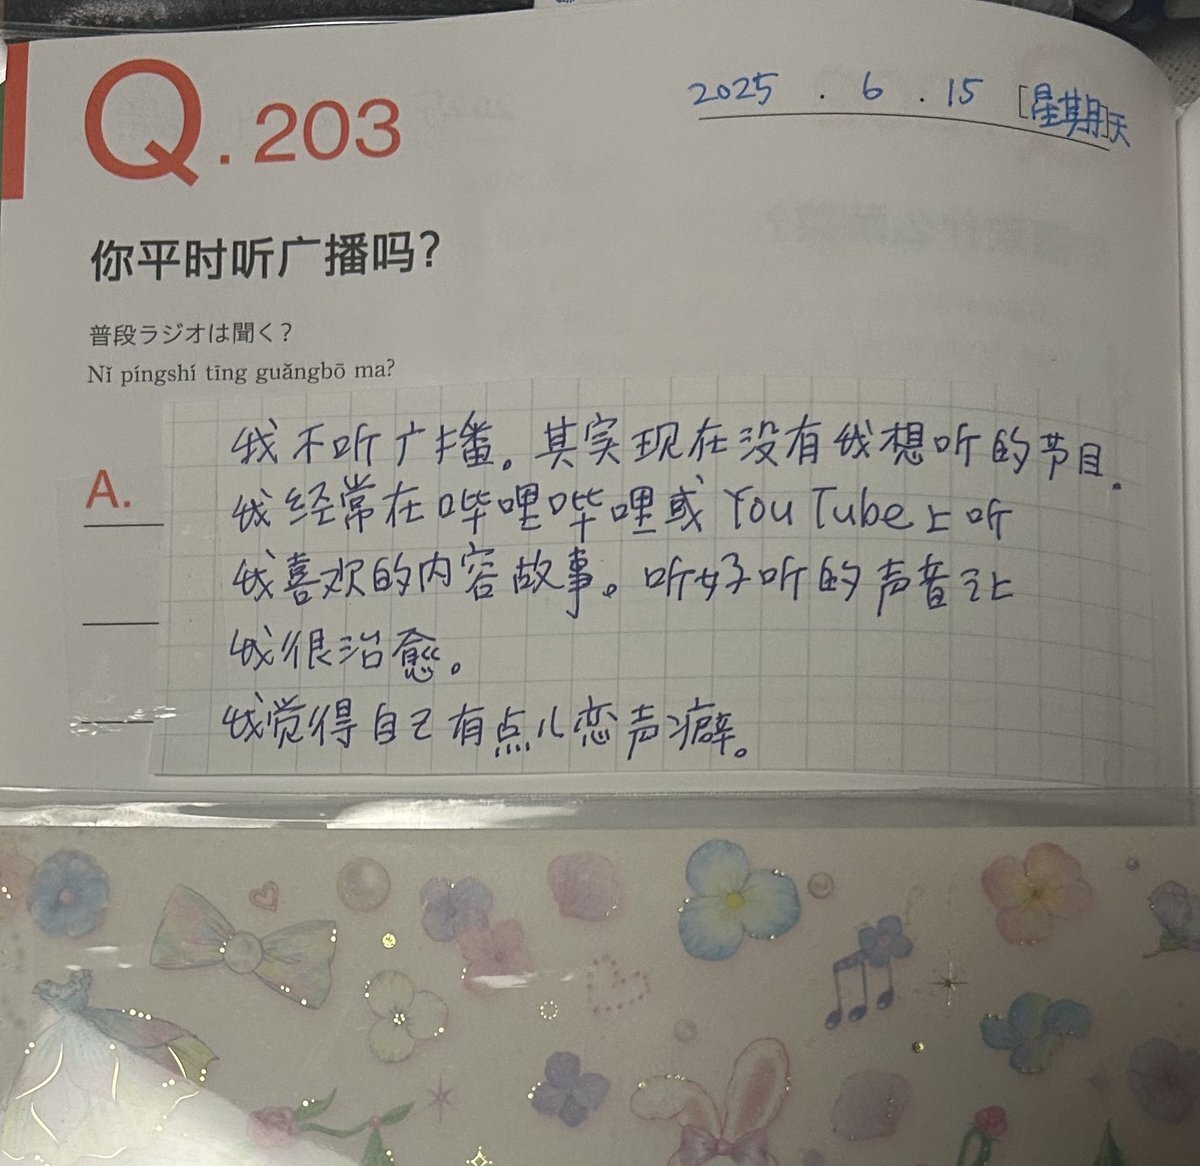 Q.203
2025 . 6 . 15 [星期]天
你平时听广播吗?
普段ラジオは聞く?
Nǐ píngshí tīng guǎngbō ma?
A.
我不听广播。其实现在没有我想听的节目.
我经常在哔哩哔哩或YouTube上听
我喜欢的内容故事。听好听的声音让
我很治愈。
我觉得自己有点儿恋声癖。